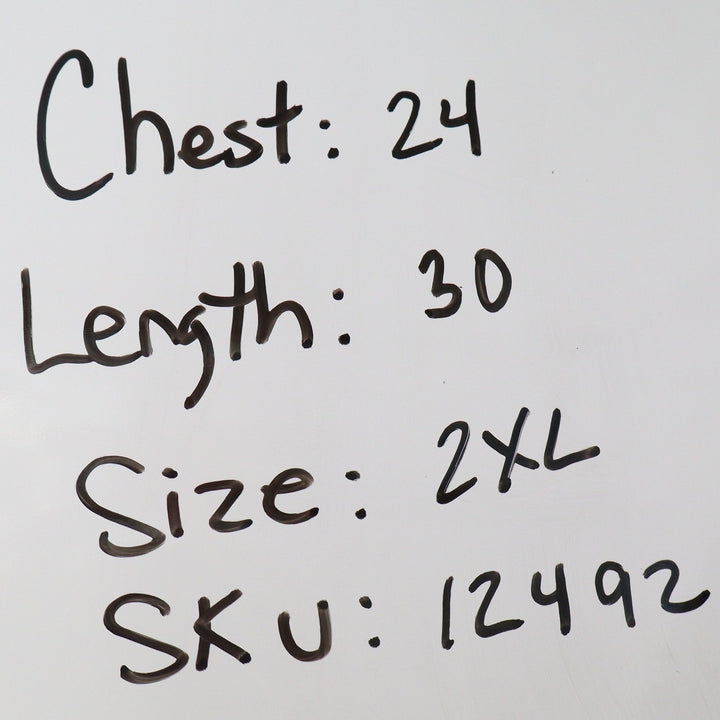 Chest: 24
Length: 30
Size: 2XL
SKU: 12492